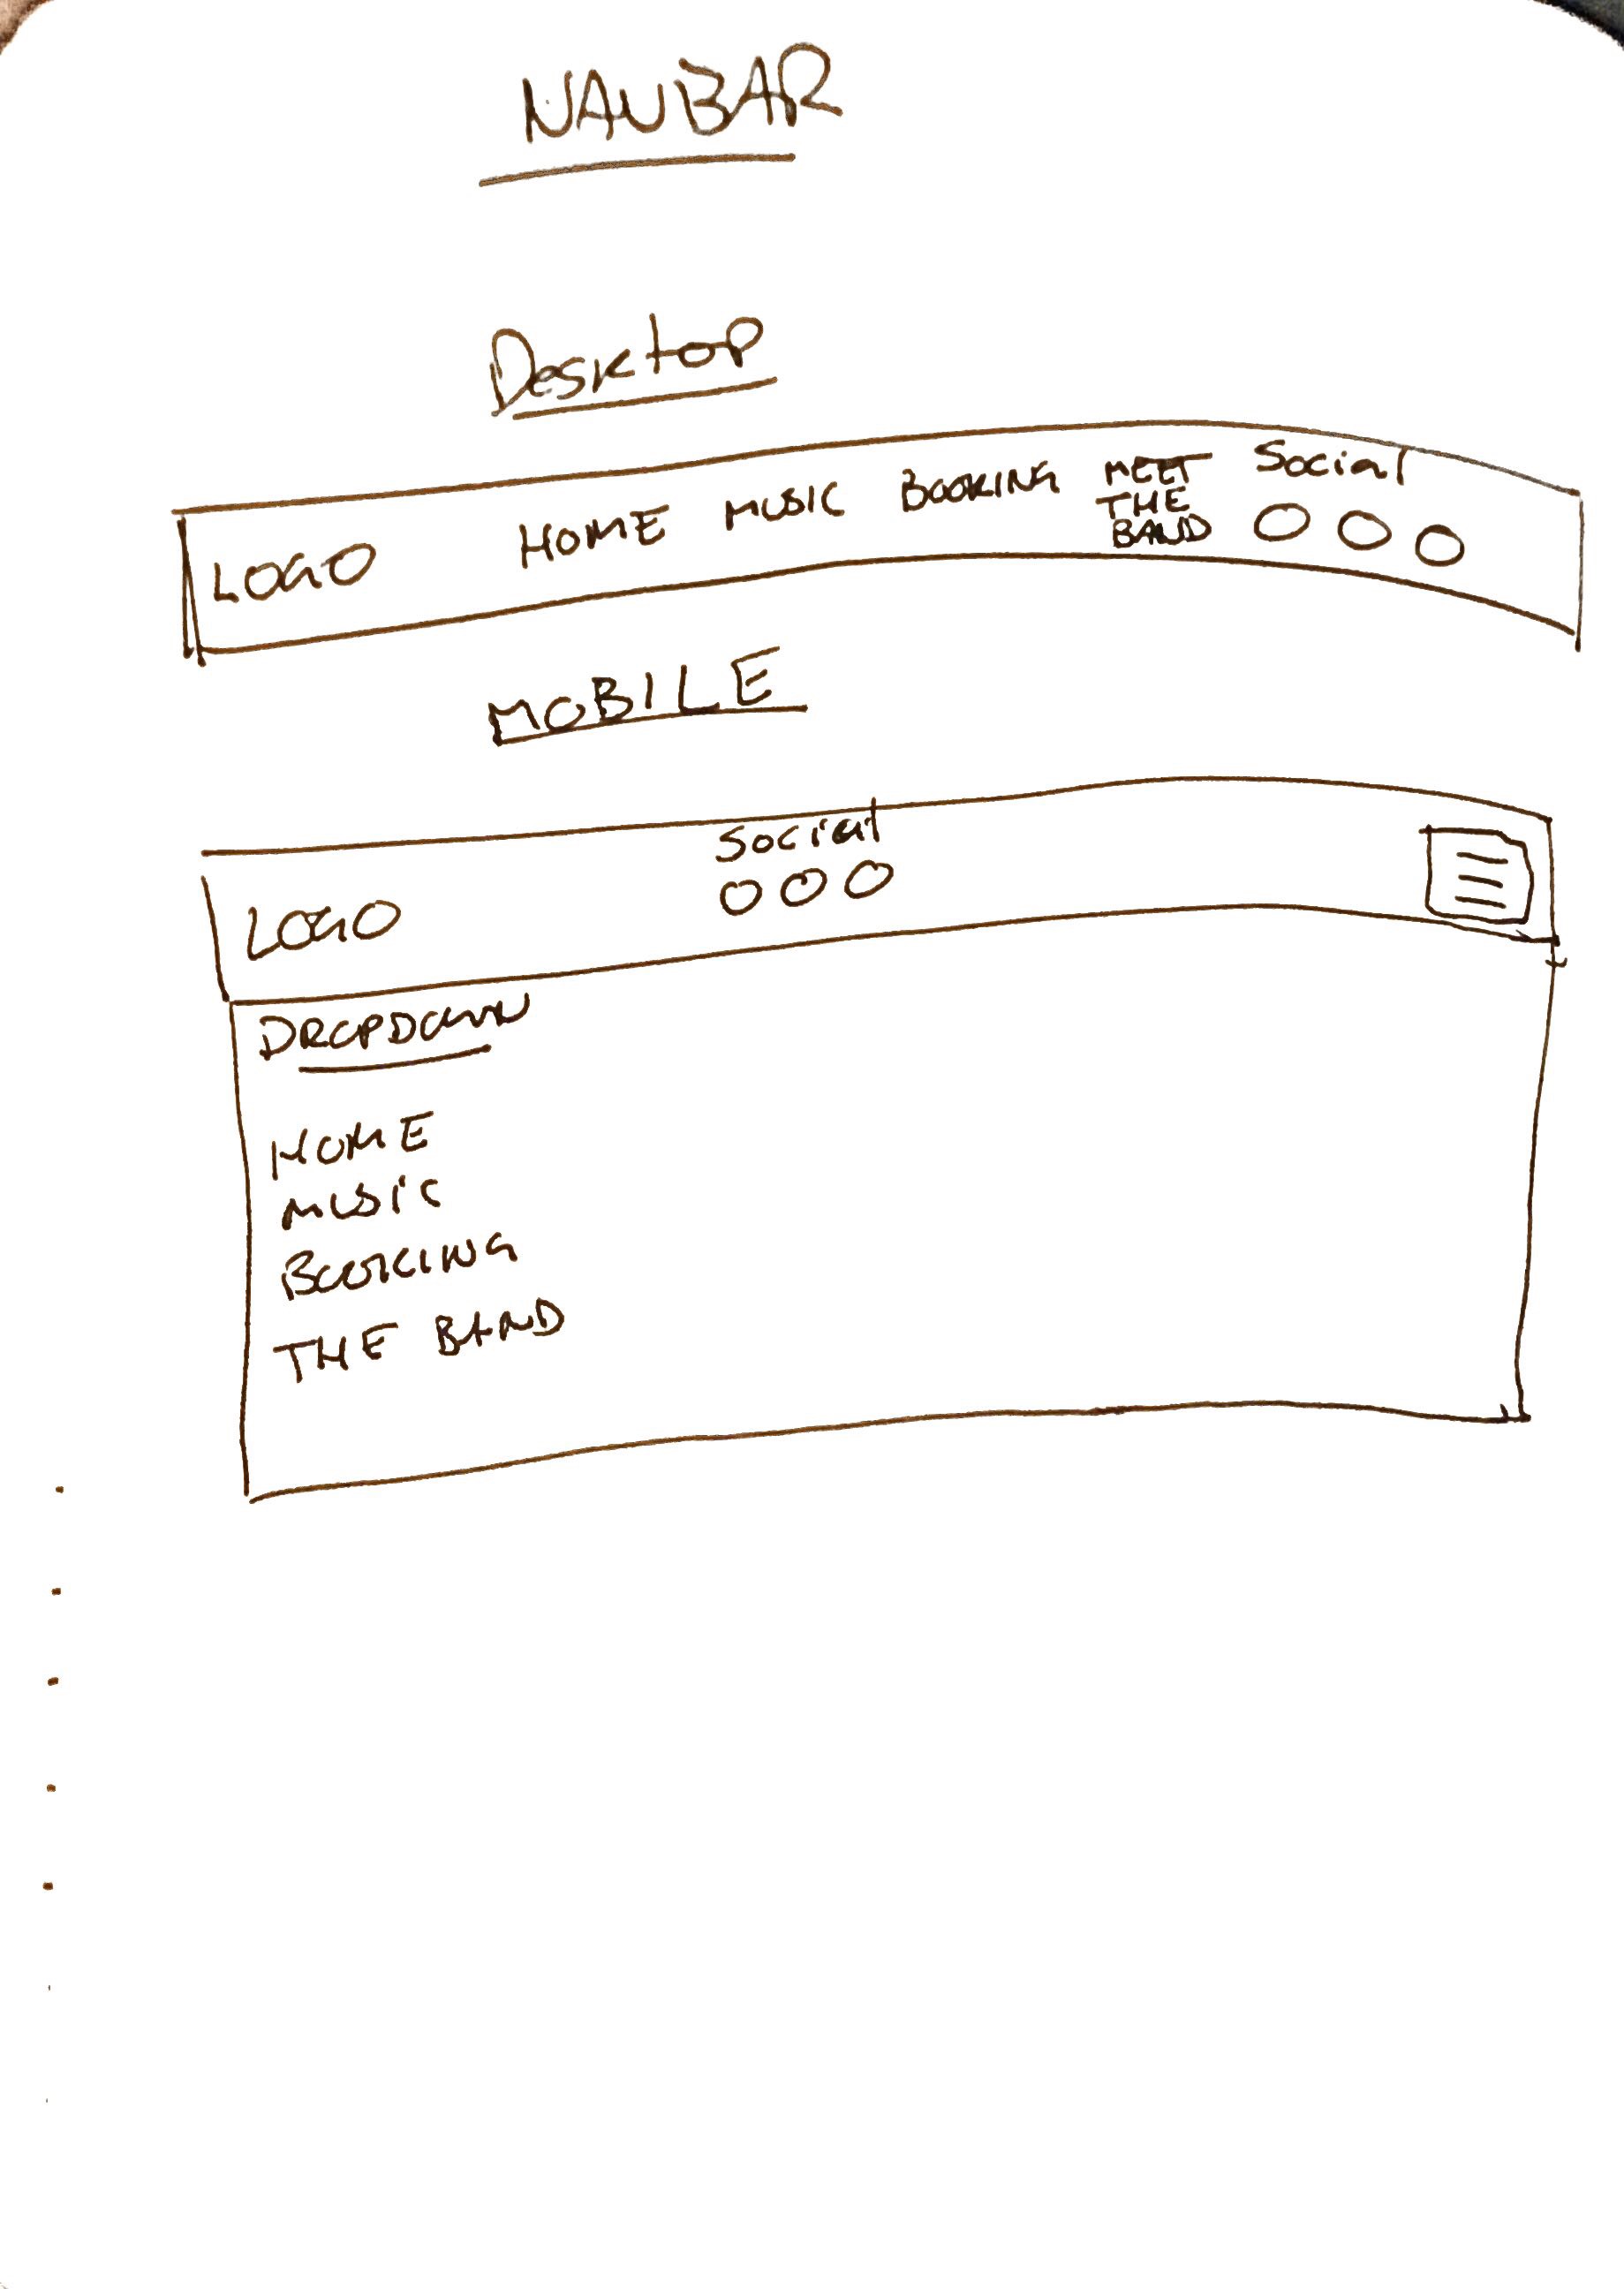 NAVBAR
Desktop
LOGO HOME MUSIC BOOKING MEET THE BAND Social
MOBILE
LOGO Social
DROPDOWN
HOME
MUSIC
BOOKING
THE BAND